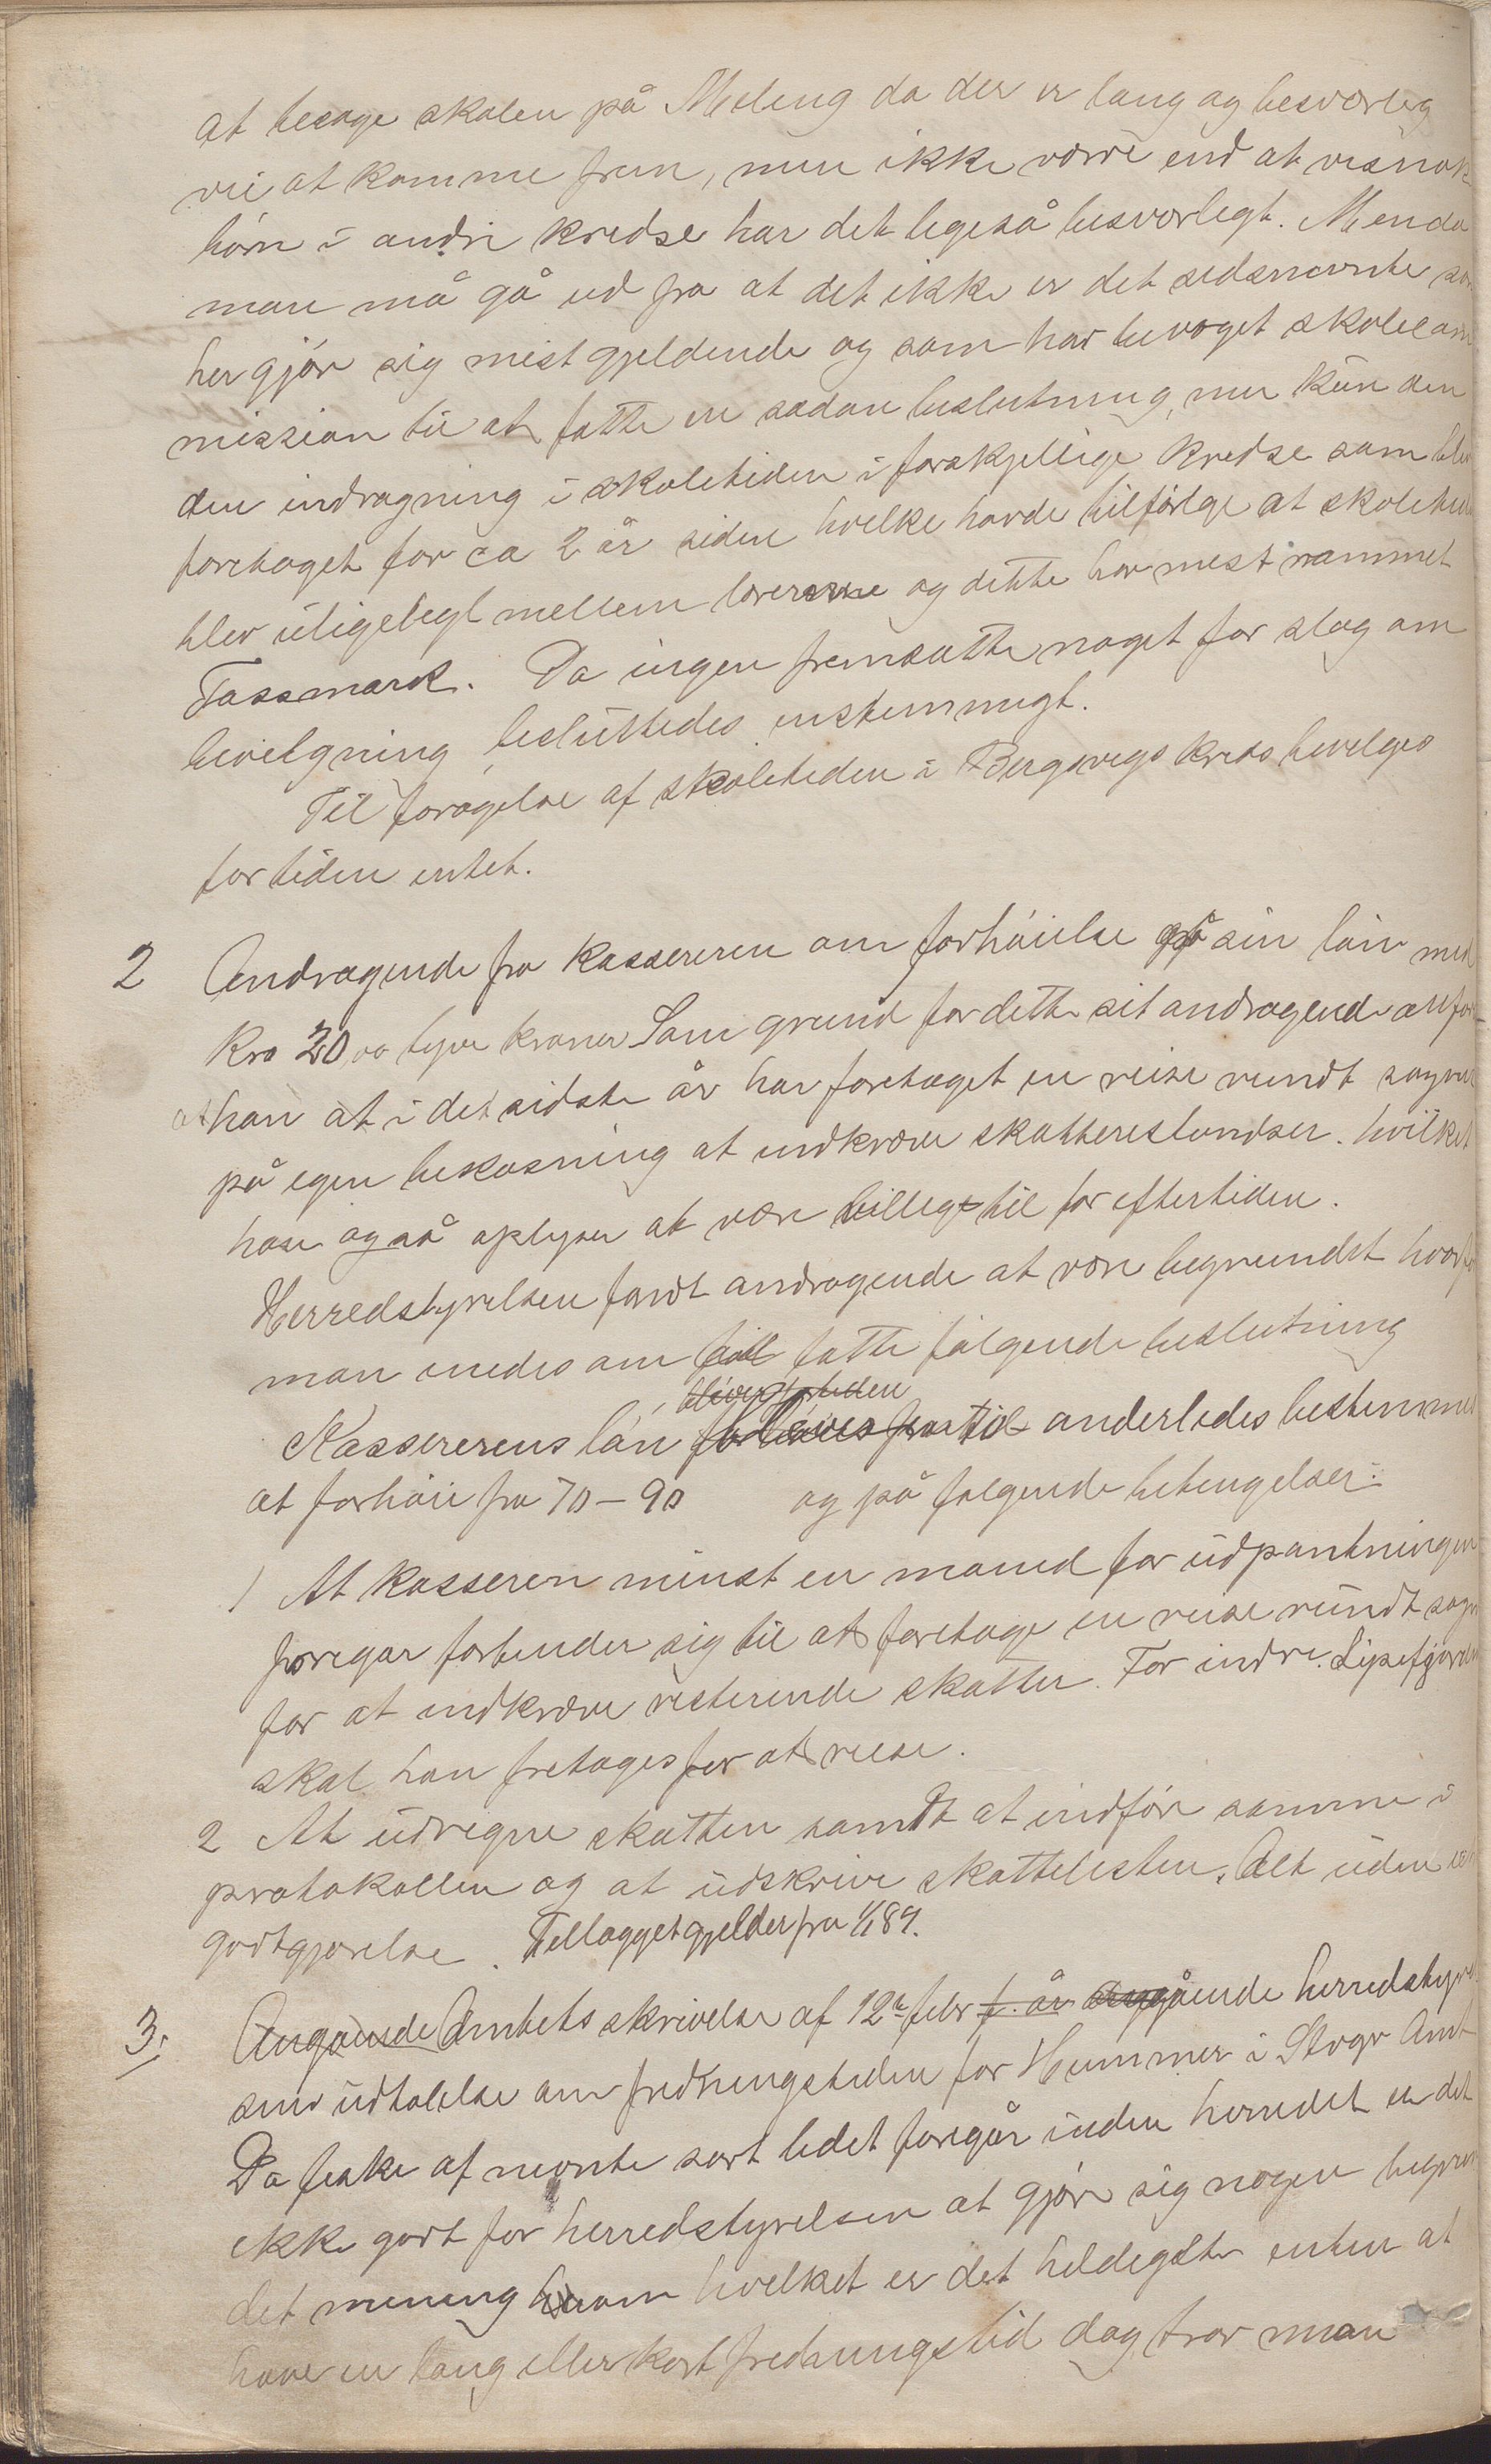 at besøge skolen på Meling da der er lang og besværleg
vei at komme frem, men ikke værre end at visnok
børn i andre kredse har det ligeså besværlegt. Men da
man må gå ud fra at det ikke er det sidsnævnte som
her gjør sig mest gjeldende og som har bevæget skolecom
mission til at fatte en sadan beslutning, men kun den
den indragning i skoletiden i forskjellige kredse som blev
foretaget for ca 2 år siden hvilke havde tilfølge at skoletiden
blev uligelegt mellem lærerne og dette har mest rammet
Tassmark. Da ingen fremsatte noget for slag om
bevilgning, besluttedes enstemmigt.
Til forøgelse af skoletiden i Bergevigs kreds bevilges
for tiden intet.
2 Andragende fra Kassereren om forhøielse på sin løn med
Kro 20,00 tyve kroner Som grund for dette sit andragende anfør-
at han at i det sidste år har foretaget en reise rundt sognet
på egen bekosning at indkræve skatterestandser. hvilket
han også oplyser at være villig til for eftertiden.
Herredstyrelsen fandt andragende at være begrundet hvorfor
man enedes om at fatte følgende beslutning
bliver fortiden
Kassererens løn forhøies fra til anderledes bestemmes
at forhøie fra 70 – 90 og på følgende betengelser:
1 At kasseren minst en maned før udpantningen
foregar forbinder sig til at foretage en reise rundt sogn
for at indkræve resterende skatter. For indre Lysefjorden
skal han fretages for at reise.
2 At udregne skatten samt at indføre samme i
protokollen og at udskrive skattelisten. Alt uden
godtgjørelse. Tellægget gjelder fra 1/1 89.
3. Angående Amtets skrivelse af 12te febr f. år angående herredstyrel
sens udtalelse om fredningstiden for Hummer i Stvgr Amt
Da fiske af nevnte sort lidet foregår inden herredet er det
ikke godt for herredstyrelsen at gjøre sig nogen begrun
det mening om hvilket er det heldigste enten at
have en lang eller kort fredningstid dog tror man